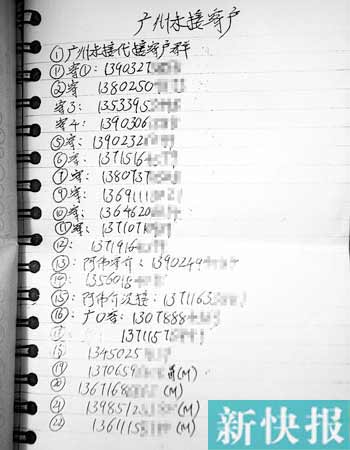 广州未接客户
①广州未接代接客户群
①客①: 139032
②客 1380250
客3: 1353395
客4: 1390306
⑤客: 1390232
⑥客: 1371516
⑦客: 1380737
⑨客: 1369111
⑩客: 1364620
⑪客: 137107
⑫: 1371916
⑬: 阿伟客介: 1390249
⑭: 1356018
⑮: 阿伟介没接: 1371163
⑯: 广口客: 1307888
1371157
18 1345025
⑲ 1370659 (M)
⑳ 1367168 (M)
㉑ 1398512 (M)
㉒ 1361115 (M)
新快报